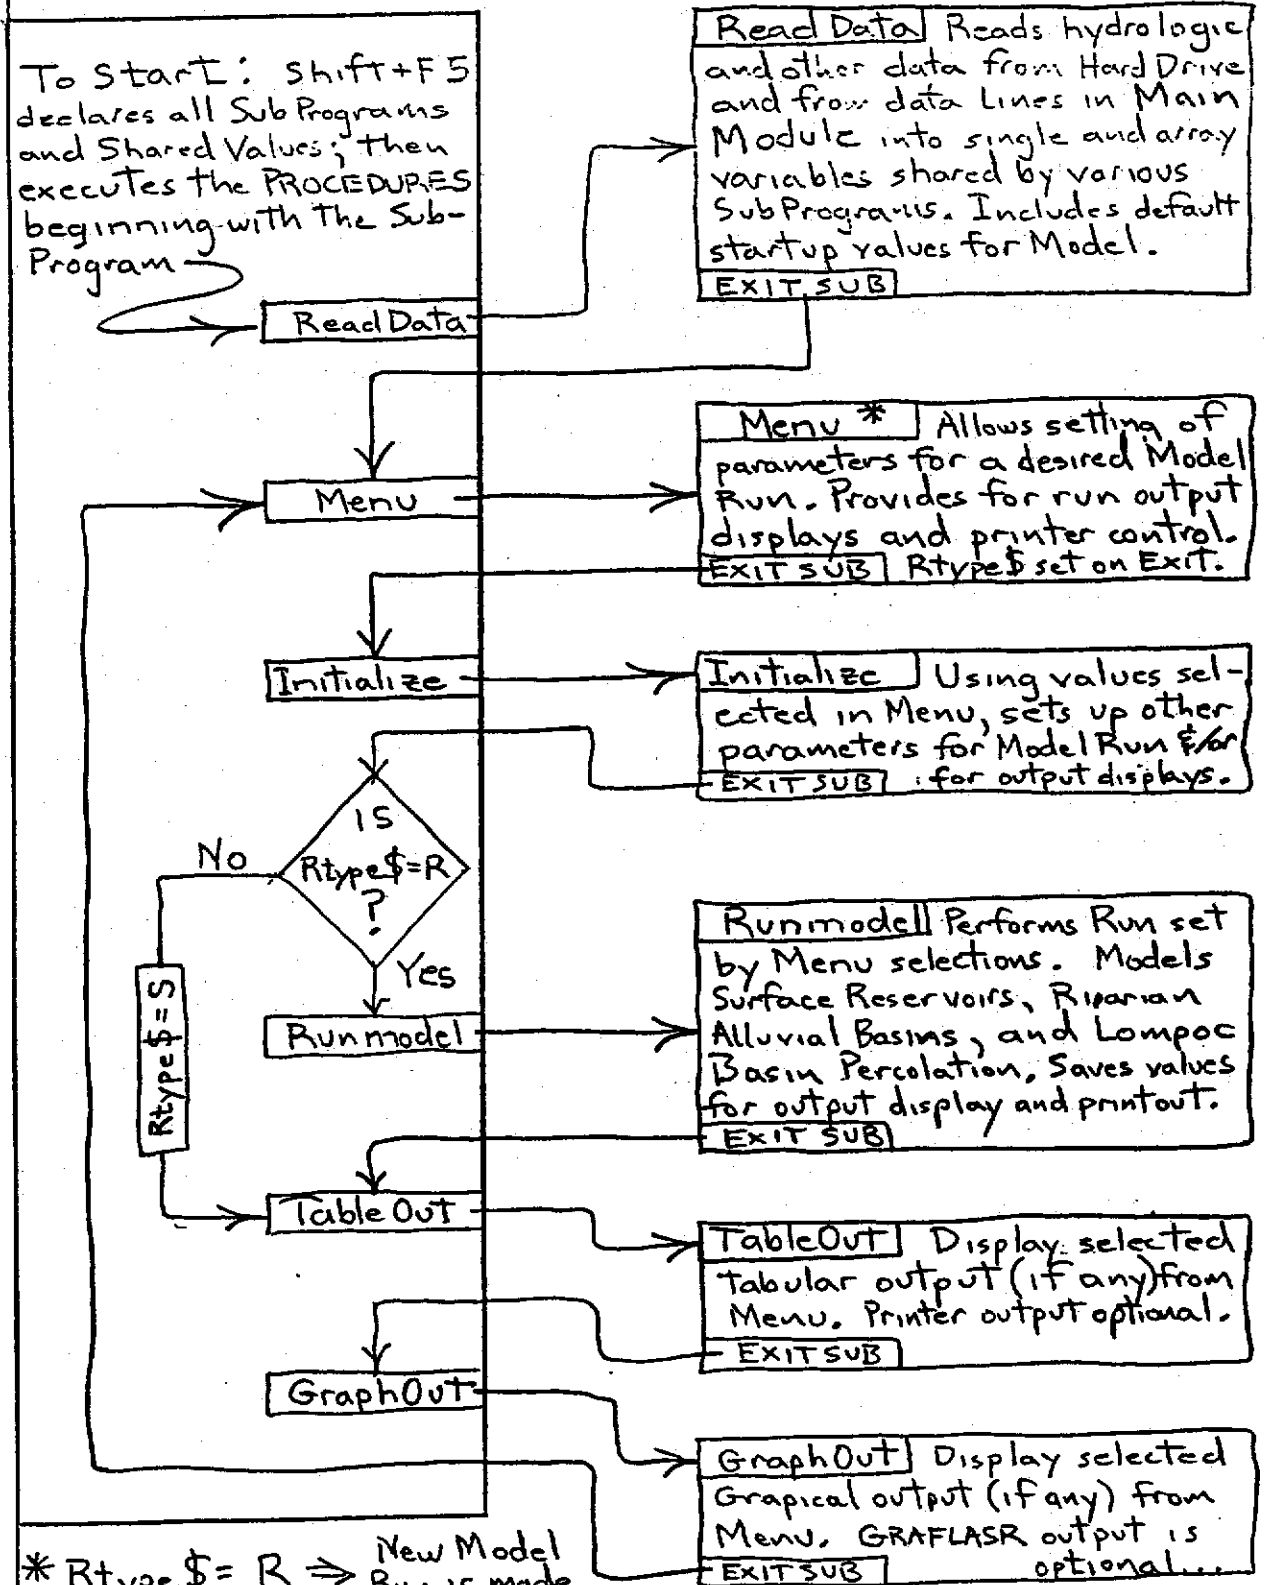 To Start: Shift+F5
declares all SubPrograms
and Shared Values; then
executes the PROCEDURES
beginning with the Sub-
Program
ReadData
Read Data Reads hydrologic
and other data from Hard Drive
and from data Lines in Main
Module into single and array
variables shared by various
SubPrograms. Includes default
startup values for Model.
EXIT SUB
Menu
Menu * Allows setting of
parameters for a desired Model
Run. Provides for run output
displays and printer control.
EXIT SUB Rtype$ set on Exit.
Initialize
Initialize Using values sel-
ected in Menu, sets up other
parameters for Model Run &/or
EXIT SUB for output displays.
IS
Rtype$=R
?
No
Yes
Rtype$=S
Runmodel
Runmodel Performs Run set
by Menu selections. Models
Surface Reservoirs, Riparian
Alluvial Basins, and Lompoc
Basin Percolation. Saves values
for output display and printout.
EXIT SUB
TableOut
TableOut Display selected
tabular output (if any) from
Menu. Printer output optional.
EXIT SUB
GraphOut
GraphOut Display selected
Grapical output (if any) from
Menu. GRAFLASR output is
EXIT SUB optional...
* Rtype$= R ⇒ New Model
Run is made